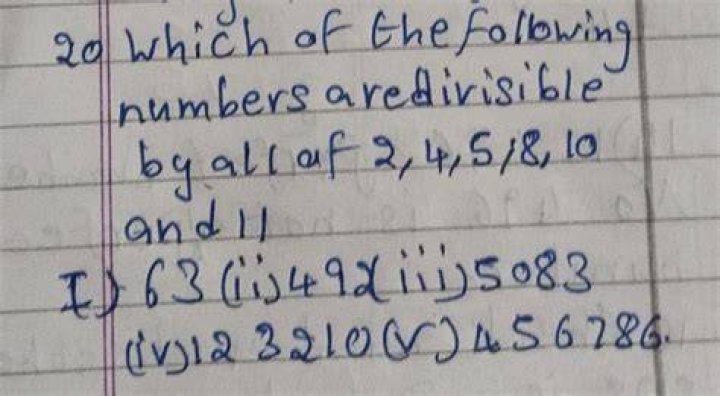 20) Which of the following
numbers are divisible
by all of 2, 4, 5, 8, 10
and 11
I) 63 (ii) 492 (iii) 5083
(iv) 123210 (v) 456786.